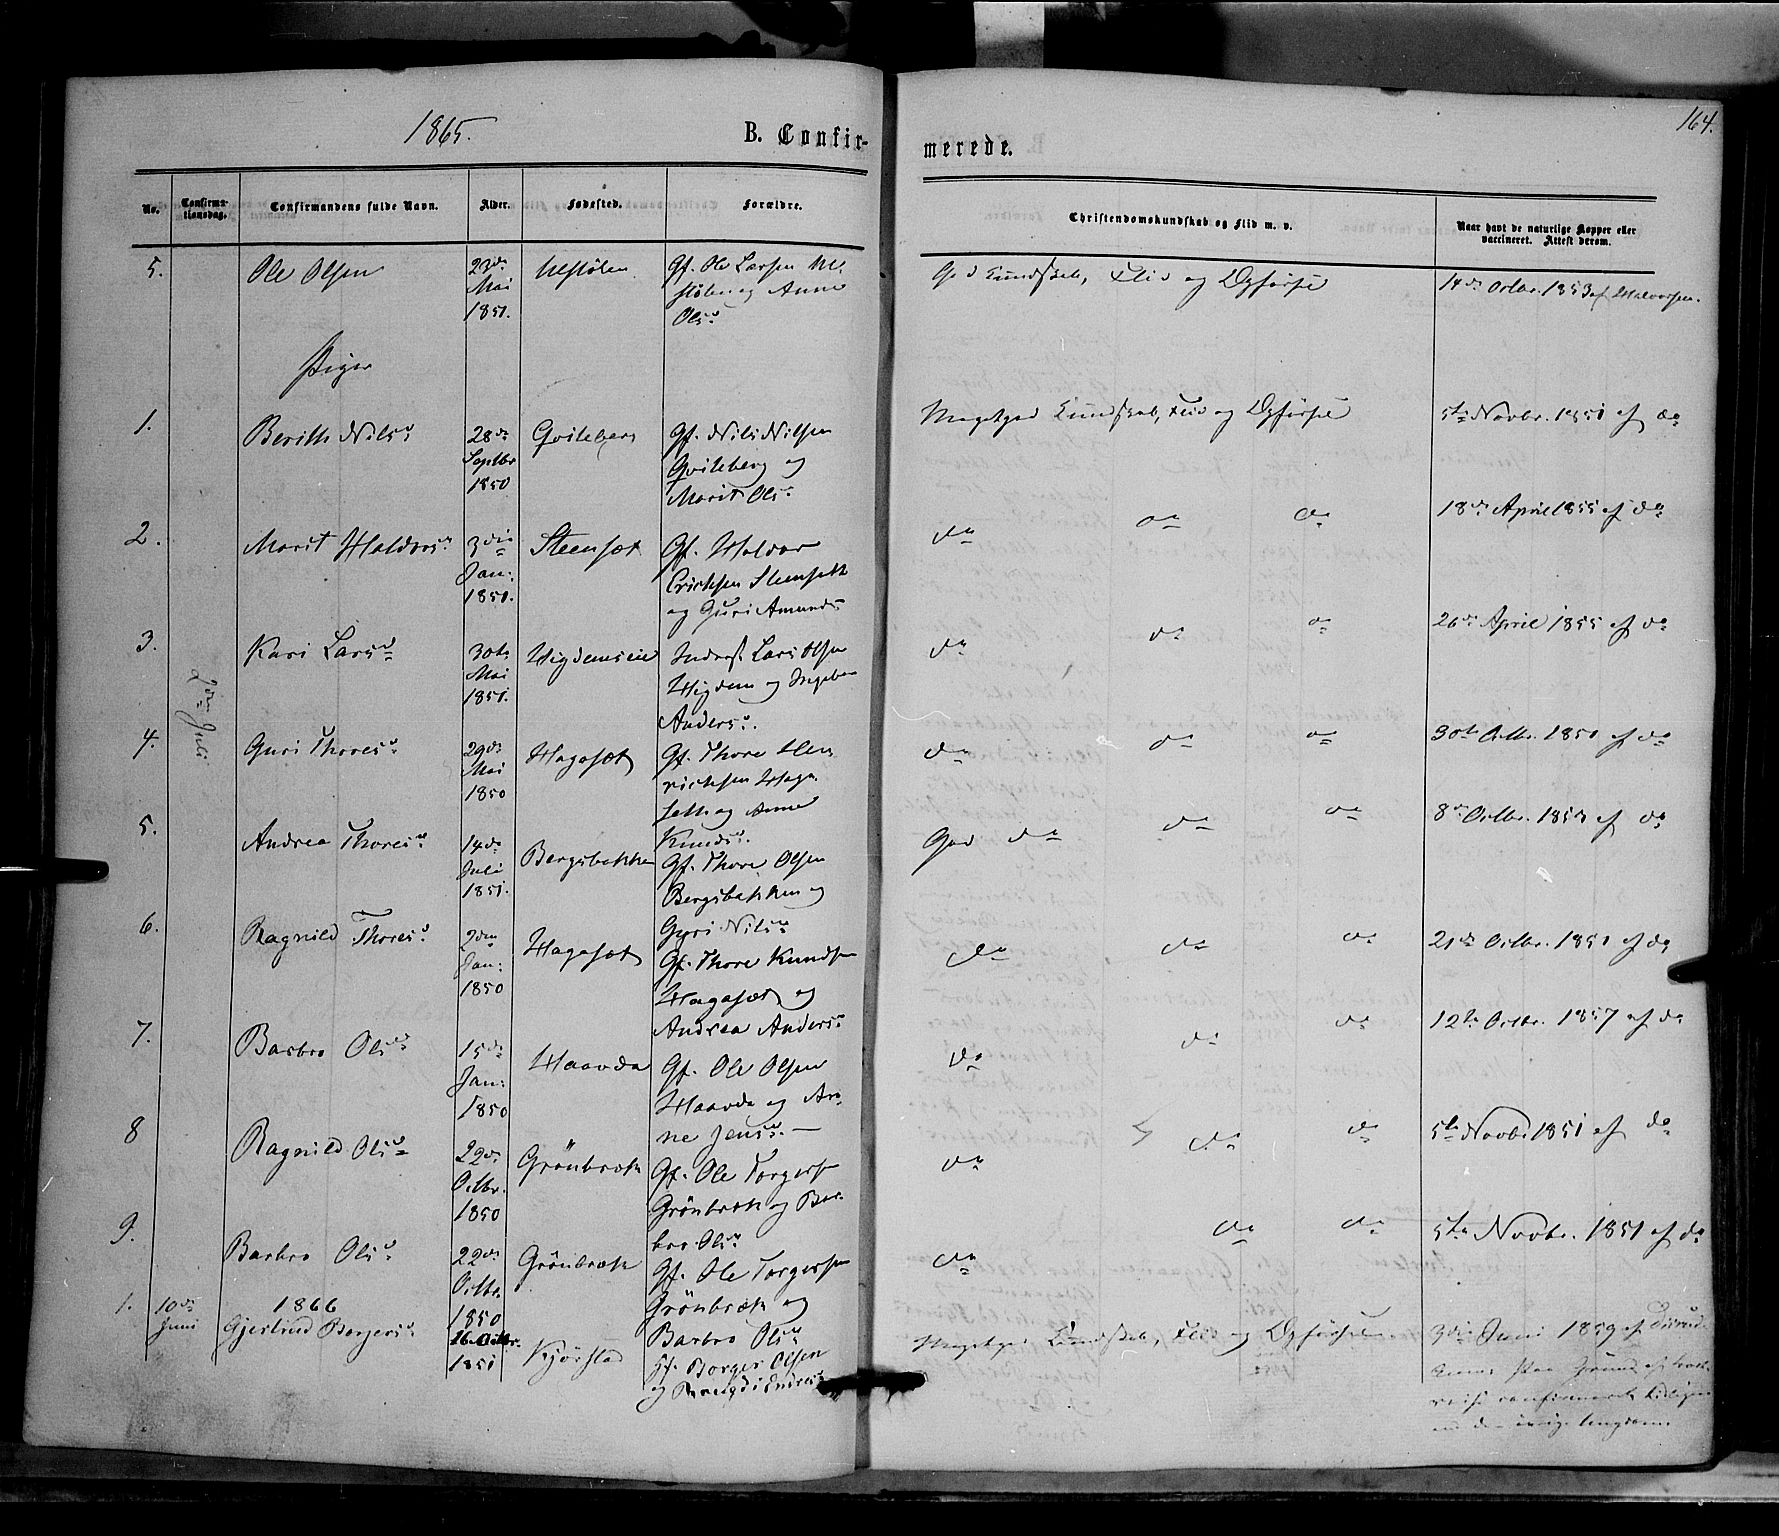 164.
1865.
B. Confir-
merede.
No.
Confirma-
tionsdag.
Confirmandens fulde Navn.
Alder.
Fødested.
Forældre.
Christendomskundskab og Flid m. v.
Naar havt de naturlige Kopper eller
vaccineret. Attest derom.
5.
Ole Olsen
23de
Mai
1851.
Gf. Ole Larsen
og Anne
Ols d.
God Kundskab, Flid og Opførsel
14de Octbr. 1853 af Halvorsen.
Piger
1.
Berith Nils d.
28de
Septbr
1850
Gviteberg
Gf. Nils Nilsen
Gviteberg og
Marit Ols d.
Megetgod Kundskab, Flid og Opførsel
5te Novbr. 1851 af do
2.
Marit Haldors d.
3die
Jan:
1851.
Steensæt
Gf. Haldor
Erichsen Steensett
og Guri Amunds
do do do
18de April 1855 af do
3.
2den Juli
Kari Lars d.
30te
Mai
1851.
Higdenseie
Inderst Lars Olsen
Higden og Ingebor
Anders d.
do do do
26de April 1855 af do
4.
Guri Thores d.
29de
Mai
1850
Hagasæt
Gf. Thore Hen
richsen Haga
seth og Anne
Knuds d.
do do do
30te Octbr. 1850 af do
5.
Andrea Thores d.
14de
Juli
1851.
Bergsbakken
Gf. Thore Olsen
Bergsbakken og
Gyri Nils d.
God do do do
8de Octbr. 1853 af do
6.
Ragnild Thores d.
2den
Jan:
1850
Hagasæt
Gf. Thore Knudsen
Hagasæt og
Andrea Anders d.
do do do
21de Octbr. 1851 af do
7.
Barbro Ols d.
15de
Jan:
1850
Haavda
Gf. Ole Olsen
Haavda og An-
ne Jens d.
do do do
12te Octbr. 1857 af do
8
Ragnild Ols d.
22de
Octbr.
1850
Grönbræk
Gf. Ole Torgersen
Grönbræk og Bar-
bro Ols d.
do do do
5te Novbr 1851 af do
9.
Barbro Ols d.
22de
Octbr.
1850
Grönbræk
Gf. Ole Torgersen
Grönbræk og
Barbro Ols d.
do do do
5te Novbr. 1851 af do
1866
1.
10de
Juni
Gjerlind Borgers d.
16 Octbr.
1851
Kjørstad
Gf. Borger Olsen
og
Megetgod Kundskab, Flid og Opførsel
3die Juni 1859 af